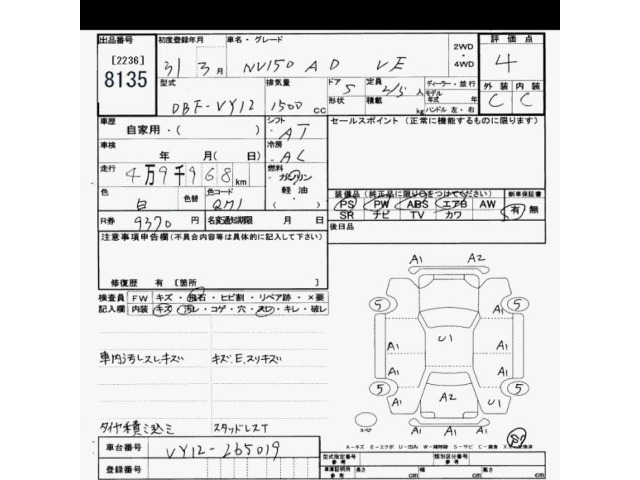 出品番号 初度登録年月 車名・グレード 2WD・4WD 評価点
[2236] 31 3月 NV150 AD VE 4
8135 型式 排気量 ドア 5 定員 2/5人 ディーラー・並行 外装 内装
DBF-VY12 1500 cc 形状 積載 kg モデル 年式 年 ハンドル 左・右 C C
車歴 自家用・( ) シフト AT セールスポイント (正常に機能するものに限ります)
車検 年 月( 日) 冷房 AC
走行 4万9千968km 燃料 ガソリン 軽油・
色 白 色替 色コード QM1 装備品(純正品に限り○をつけてください) 新車保証書
PS PW ABS エアB AW 有 無
R券 9370円 名変通知期限 月 日 SR ナビ TV カワ
注意事項申告欄(不具合内容等は具体的に記入して下さい) 後日品
修復歴 有 [箇所 ]
検査員 FW キズ・飛石・ヒビ割・リペア跡・×要
記入欄 内装 キズ・汚レ・コゲ・穴・スレ・キレ・破レ
車内汚レスレキズ キズ.E.スリキズ
タイヤ積ミ込ミ スタッドレスT
A1 A2
5 A1 A1 5
A1 U1 A1
5 A1 A2 U1 5
A1 A1 A1
スペア
A-キズ E-エクボ U-凹み W-補修跡 S-サビ C-腐食
車台番号 VY12-265019 型式指定番号 参考 類別区分番号 参考
登録番号 車車証明用 参考 長さ cm 幅 cm 高さ cm